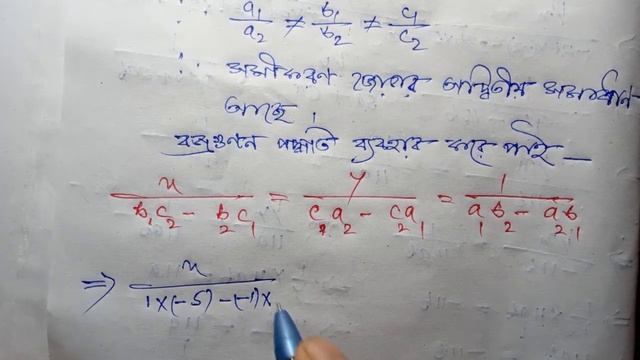 a₁/a₂ ≠ b₁/b₂ ≠ c₁/c₂
∴ সমীকরণ জোটের অদ্বিতীয় সমাধান
আছে।
বজ্রগুণন পদ্ধতি ব্যবহার করে পাই —
x/(b₁c₂ - b₂c₁) = y/(c₁a₂ - c₂a₁) = 1/(a₁b₂ - a₂b₁)
⇒ x/(1×(-5)-(-1)×